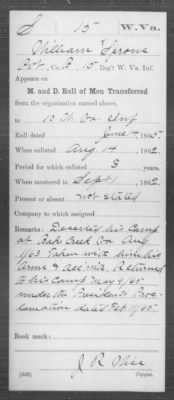 S 15 W.Va.
William Serous
Pvt., Co. B, 15 Reg't W. Va. Inf.
Appears on
M. and D. Roll of Men Transferred
from the organization named above,
to 10 W. Va. Inf
Roll dated June 14, 1865.
When enlisted Aug 14, 1862.
Period for enlisted 3 years.
When mustered in Sept 1, 1862.
Present or absent not stated
Company to which assigned
Remarks: Deserted his Camp
at Oak Creek Va. Aug.
1/63 taken with him his
Arms & Acc'mts. Returned
to his Camp May 9/65
under the Presidents Proc-
lamation dated Feb 11/65
Book mark:
J R
(543) Copyist.